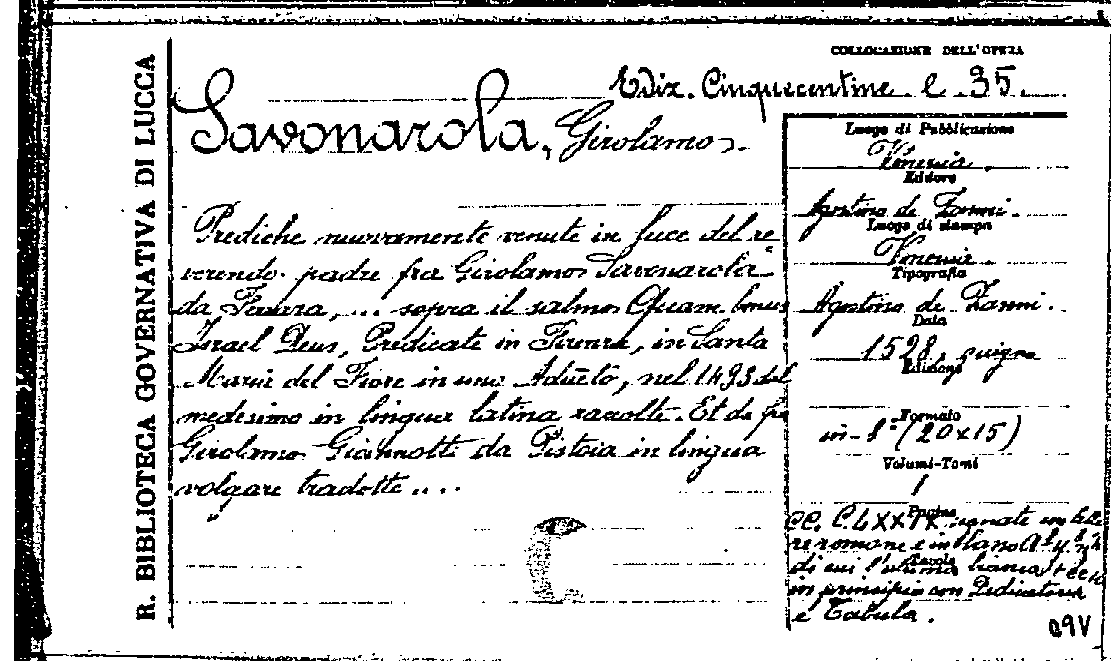 R. BIBLIOTECA GOVERNATIVA DI LUCCA
COLLOCAZIONE DELL'OPERA
Ediz. Cinquecentine l. 35.
Savonarola, Girolamo.
Prediche nuovamente venute in luce del re
verendo padre fra Girolamo Savonarola
da Ferrara, ... sopra il salmo Quam bonus
Israel Deus, Predicate in Firenze, in Santa
Maria del Fiore in uno Advēto, nel 1493 dal
medesimo in lingua latina raccolte. Et da fra
Girolamo Giannotti da Pistoia in lingua
volgare tradotte ....
Luogo di Pubblicazione
Venezia.
Editore
Agostino de Zanni.
Luogo di stampa
Venezia
Tipografia
Agostino de Zanni.
Data
1528, giugno
Edizione
Formato
in-8° (20x15)
Volumi-Tomi
1
Pagine
CC. CLXXIX
romane e in
di cui l'ultima bianca + cc 10
Tavole
in principio con Dedicatoria
e Tabula.